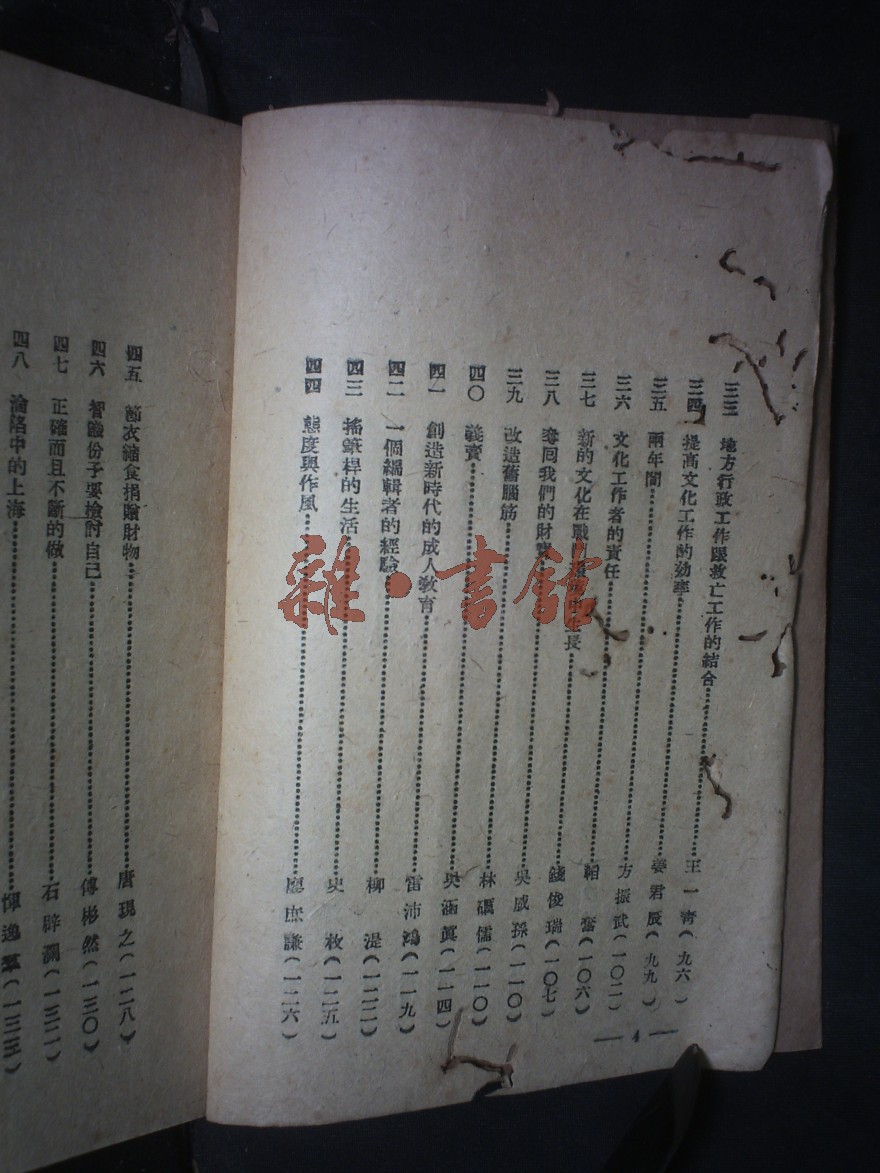 三三　地方行政工作跟救亡工作的結合………王一青（九六）
三四　提高文化工作的効率………姜君辰（九九）
三五　兩年間………方振武（一〇二）
三六　文化工作者的責任………韜奮（一〇六）
三七　新的文化在戰鬥中生長………錢俊瑞（一〇七）
三八　奪回我們的財寶………吳威孫（一一〇）
三九　改造舊腦筋………林礪儒（一一〇）
四〇　義賣………吳涵真（一一四）
四一　創造新時代的成人敎育………雷沛鴻（一一九）
四二　一個編輯者的經驗………柳湜（一二二）
四三　搖筆桿的生活………史枚（一二五）
四四　態度與作風………廖庶謙（一二六）
— 4 —
四五　節衣縮食捐贈財物………唐現之（一二八）
四六　智識份子要檢討自己………傅彬然（一三〇）
四七　正確而且不斷的做………石辟瀾（一三二）
四八　淪陷中的上海………惲逸羣（一三三）
雜·書館